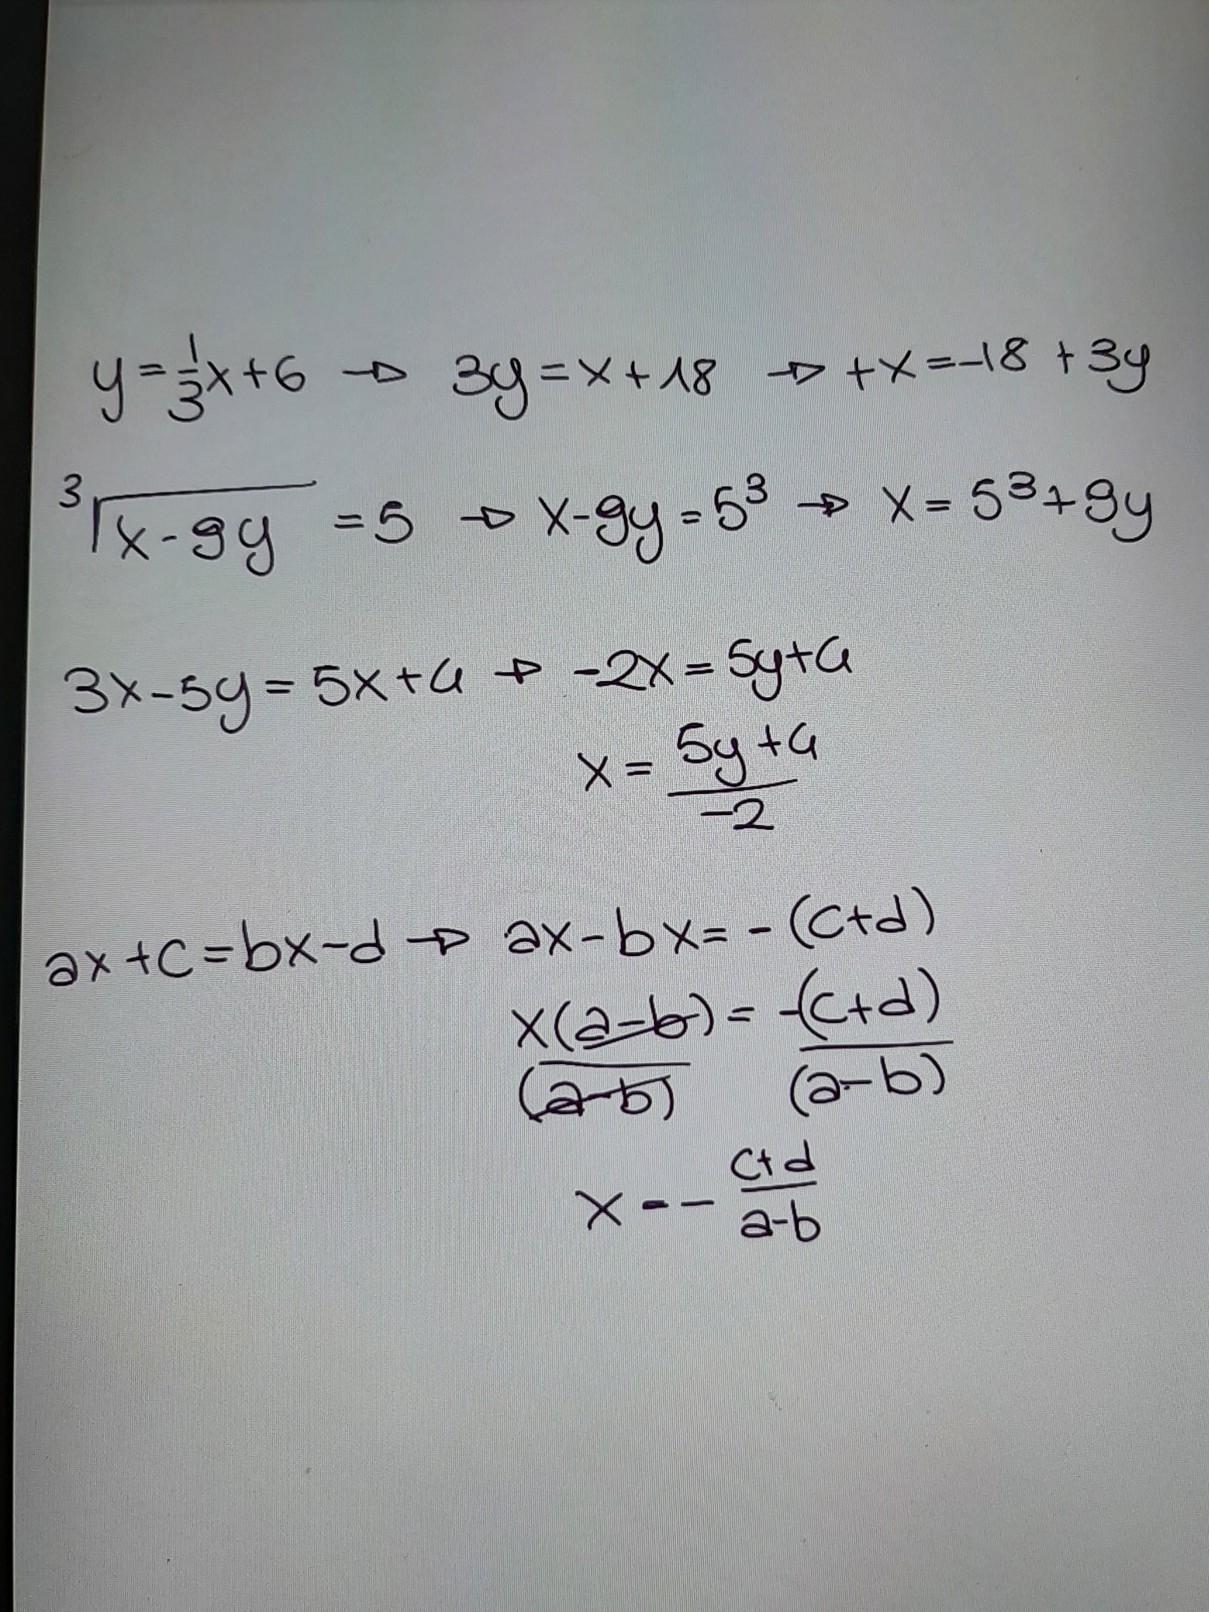 y = 1/3 x + 6 → 3y = x + 18 → +x = -18 + 3y
³√(x - 9y) = 5 → x - 9y = 5³ → x = 5³ + 9y
3x - 5y = 5x + 4 → -2x = 5y + 4
x = (5y + 4)/-2
ax + c = bx - d → ax - bx = - (c + d)
x(a - b)/(a - b) = -(c + d)/(a - b)
x = - (c + d)/(a - b)